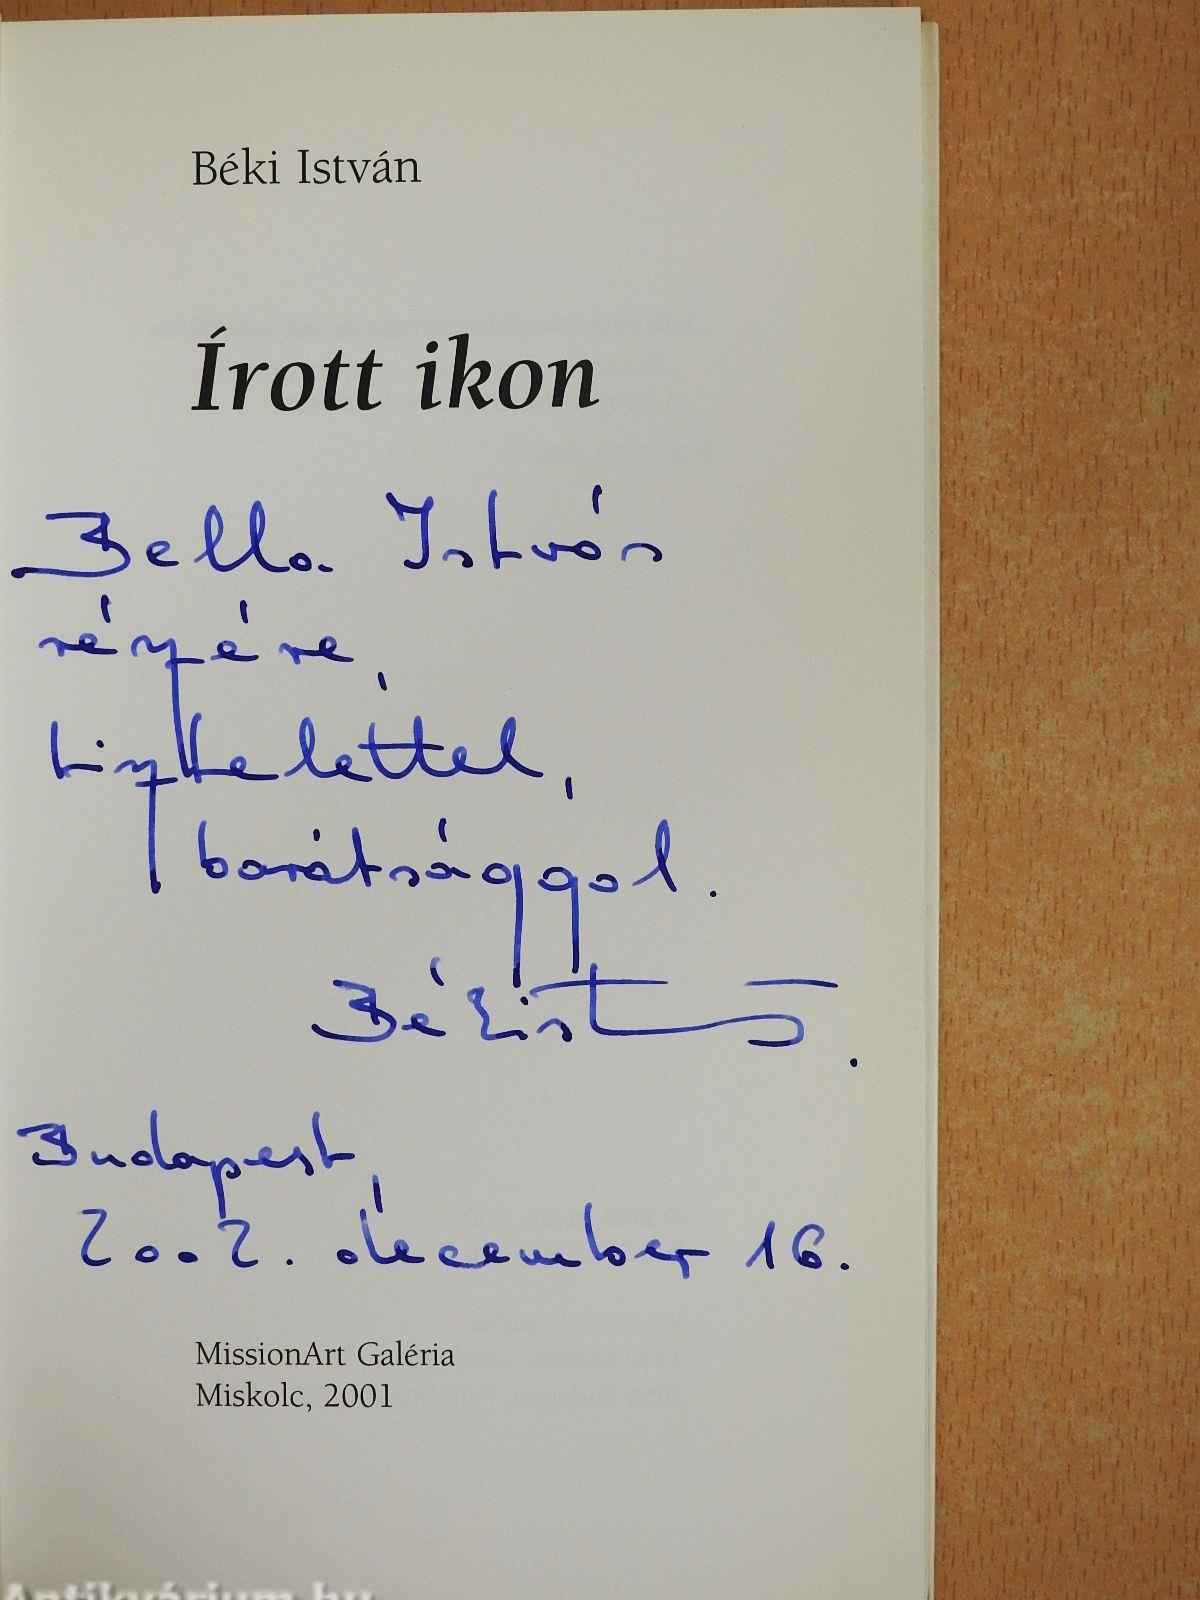 Béki István
Írott ikon
Bella István
részére,
tisztelettel,
barátsággal.
Béki István.
Budapest,
2002. december 16.
MissionArt Galéria
Miskolc, 2001
Antikvárium.hu